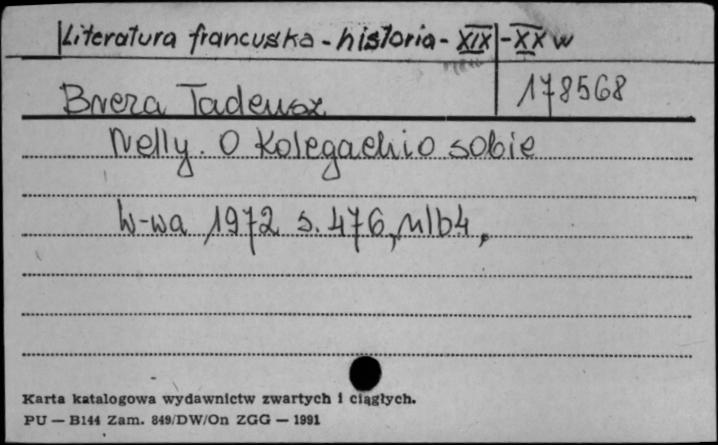 Literatura francuska - historia - XIX - XX w
Breza Tadeusz
178568
Nelly. O Kolegach i o sobie
W-wa 1972 s. 476, nlb4,
Karta katalogowa wydawnictw zwartych i ciągłych.
PU — B144 Zam. 849/DW/On ZGG — 1991